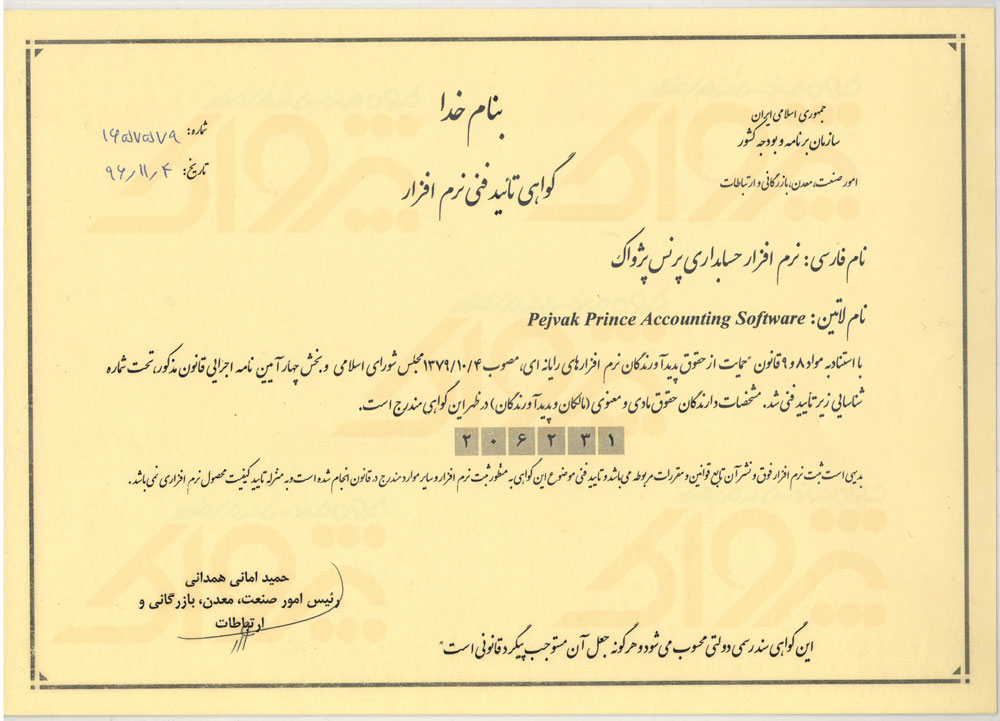 بنام خدا
جمهوری اسلامی ایران
سازمان برنامه و بودجه کشور
امور صنعت، معدن، بازرگانی و ارتباطات
شماره: ۱۶۵۷۵۷۹
تاریخ: ۹۶/۱۱/۴
گواهی تأئید فنی نرم افزار
نام فارسی: نرم افزار حسابداری پرنس پژواک
نام لاتین: Pejvak Prince Accounting Software
با استناد به مواد ۸ و ۹ قانون "حمایت از حقوق پدیدآورندگان نرم افزارهای رایانه ای، مصوب ۱۳۷۹/۱۰/۴ مجلس شورای اسلامی و بخش چهار آیین نامه اجرایی قانون مذکور، تحت شماره
شناسایی زیر تأیید فنی شد. مشخصات دارندگان حقوق مادی و معنوی (مالکان و پدیدآورندگان) در ظهر این گواهی مندرج است.
۲ ۰ ۶ ۲ ۳ ۱
بدیهی است ثبت نرم افزار فوق و نشر آن تابع قوانین و مقررات مربوطه می باشد و تایید فنی موضوع این گواهی به منظور ثبت نرم افزار و سایر موارد مندرج در قانون انجام شده است و به منزله تایید کیفیت محصول نرم افزاری نمی باشد.
حمید امانی همدانی
رئیس امور صنعت، معدن، بازرگانی و
ارتباطات
این گواهی سند رسمی دولتی محسوب می شود و هرگونه جعل آن مستوجب پیگرد قانونی است"
پژواک
پژواک
پژواک
پژواک
پژواک